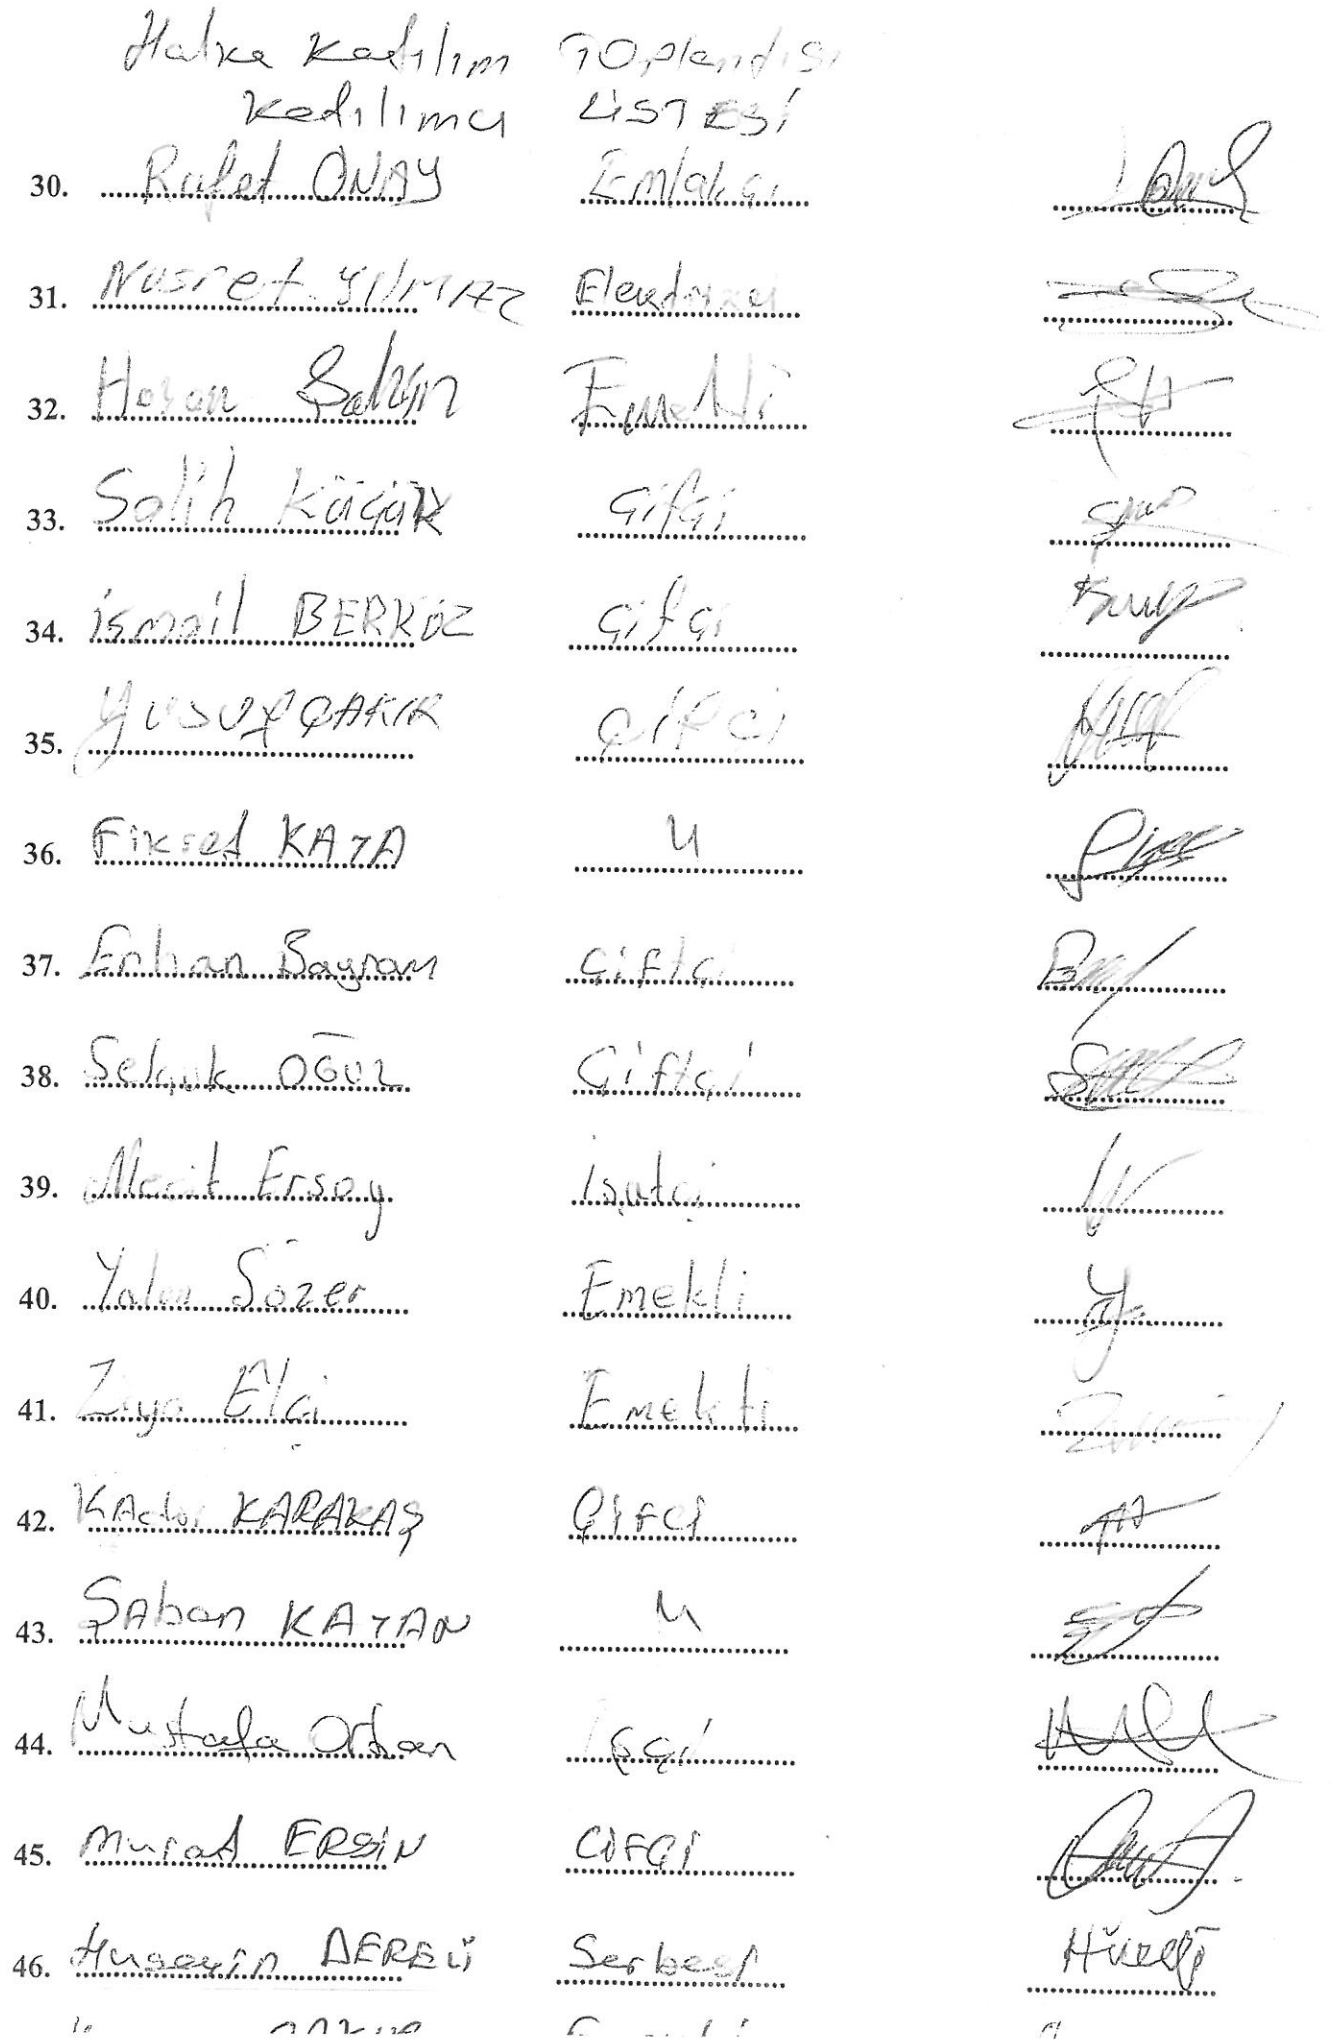 Halka Kadılım TOplandısı
Kadılımcı LİSTESİ
30. Rafet ONAY Emlakçı
31. Nusret YILMAZ
32. Hasan Şahin Emekli
33. Salih Küçük Çifçi
34. ismail BERKÖZ Çifçi
35. YUSUF ÇAKIR Çifçi
36. Fikset KAYA 
37. Erhan Bayram Çiftçi
38. Selçuk OĞUZ Çiftçi
39. Ersoy
40. Sözer Emekli
41. Ziya Elçi Emekli
42. KAdir KARAKAŞ Çifci
43. ŞAban KAYAN
44. Mustafa Orhan işçi
45. Murat ERSİN Cifçi
46. Huseyin Serbest